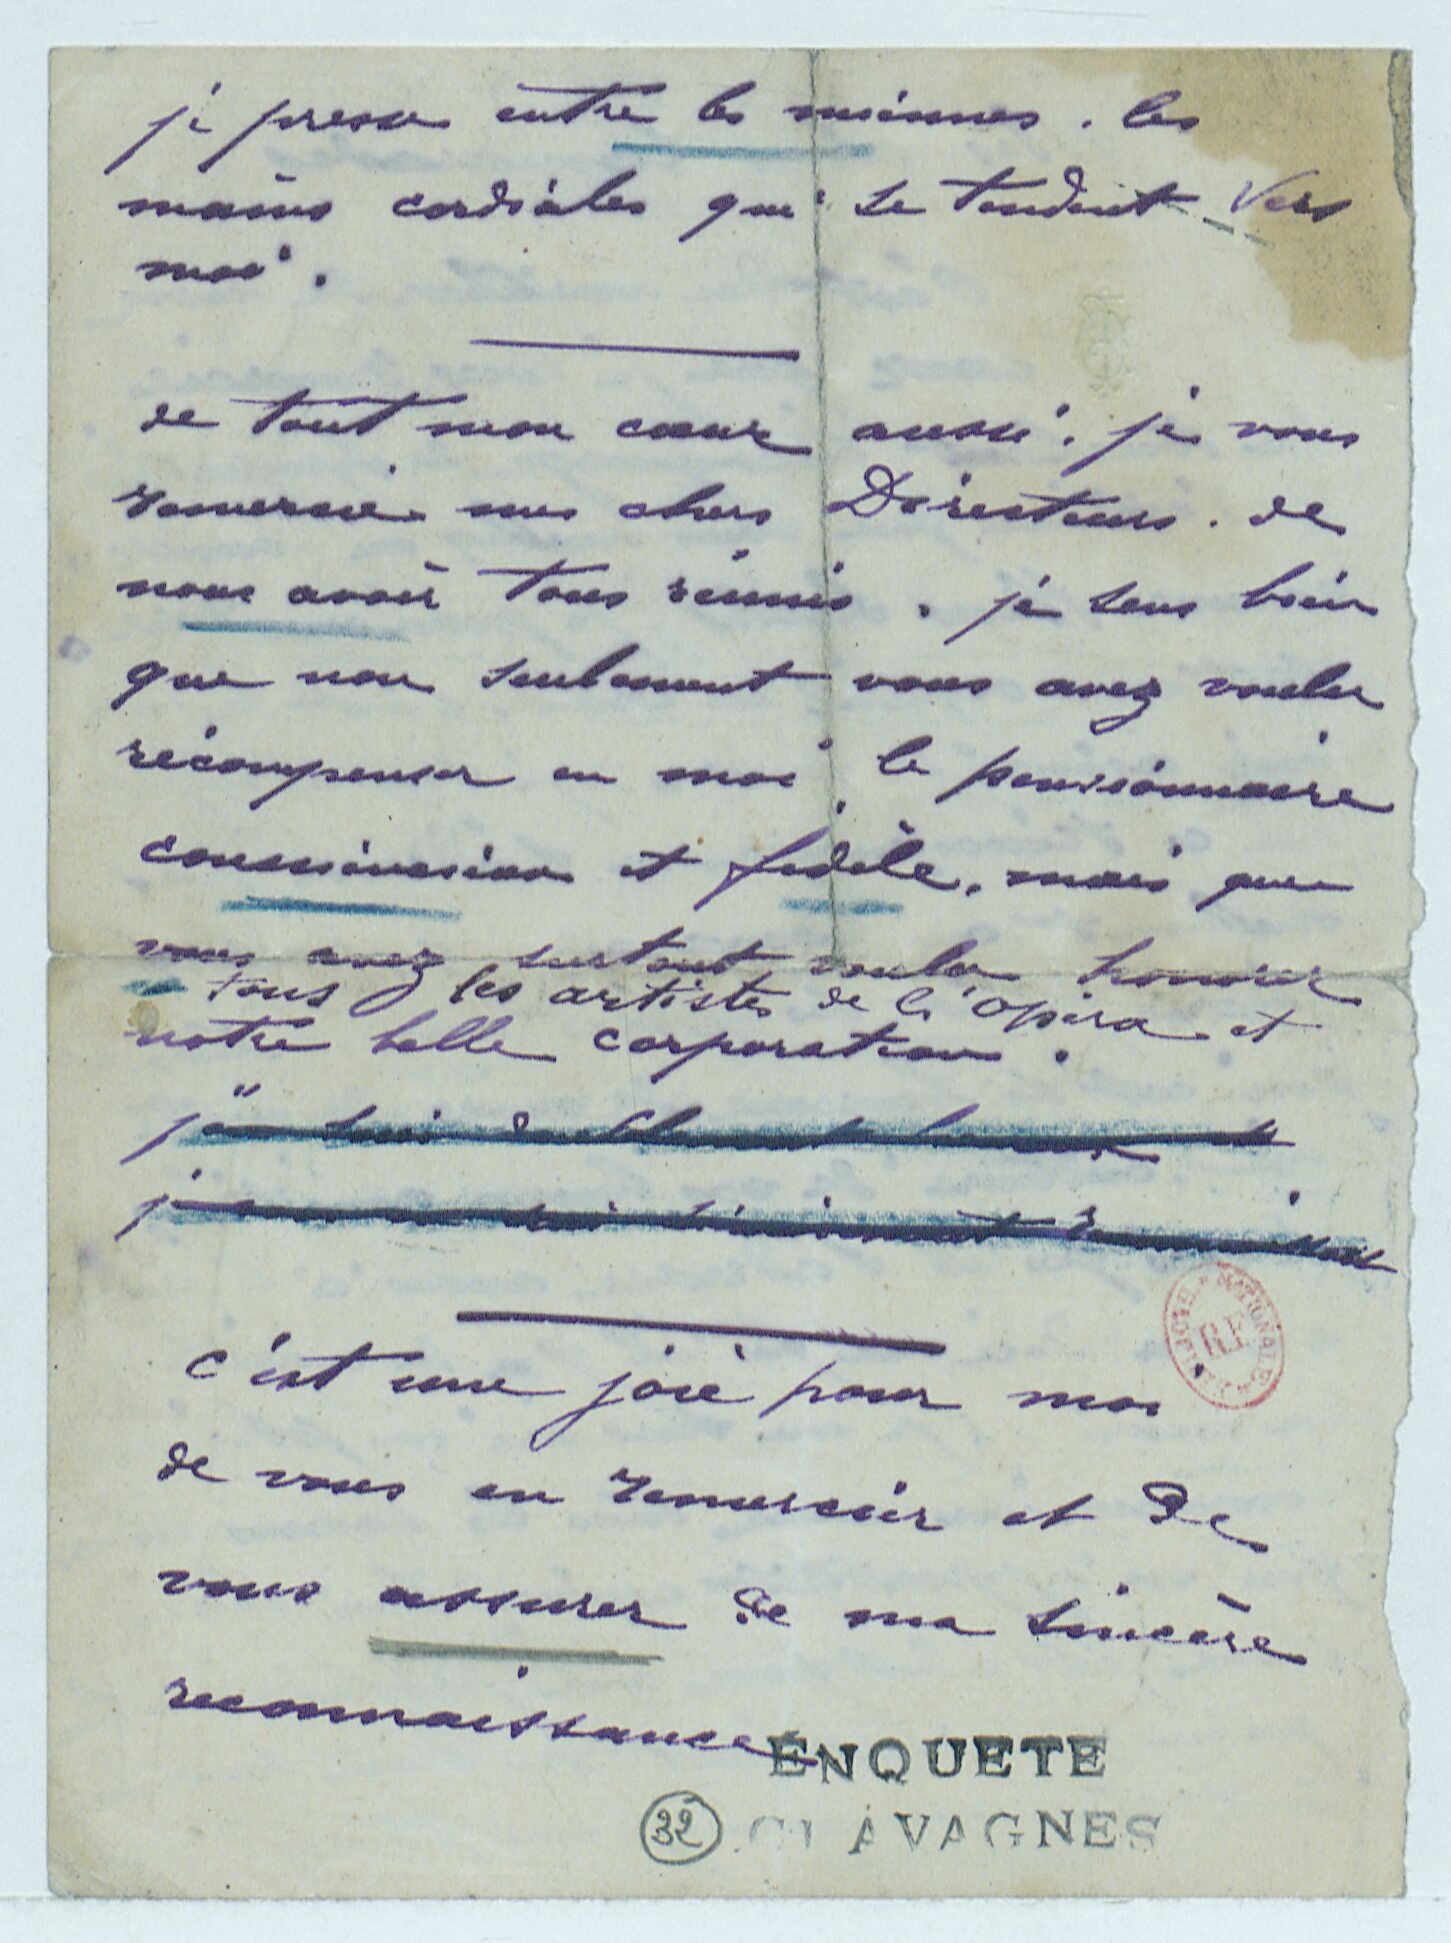 je presse entre les miennes. les
mains cordiales qui se tendent vers
moi.
de tout mon cœur aussi. je vous
remercie mes chers Directeurs. de
nous avoir tous réunis. je sens bien
que non seulement vous avez voulu
récompenser en moi le pensionnaire
consciencieux et fidèle, mais que
vous avez surtout voulu honorer
tous les artistes de l'opéra et
notre belle corporation.
j'en suis doublement heureux
je
c'est une joie pour moi
de vous en remercier et de
vous assurer de ma sincère
reconnaissance
BIBLIOTHÈQUE NATIONALE
RF
ENQUETE
32 CLAVAGNES